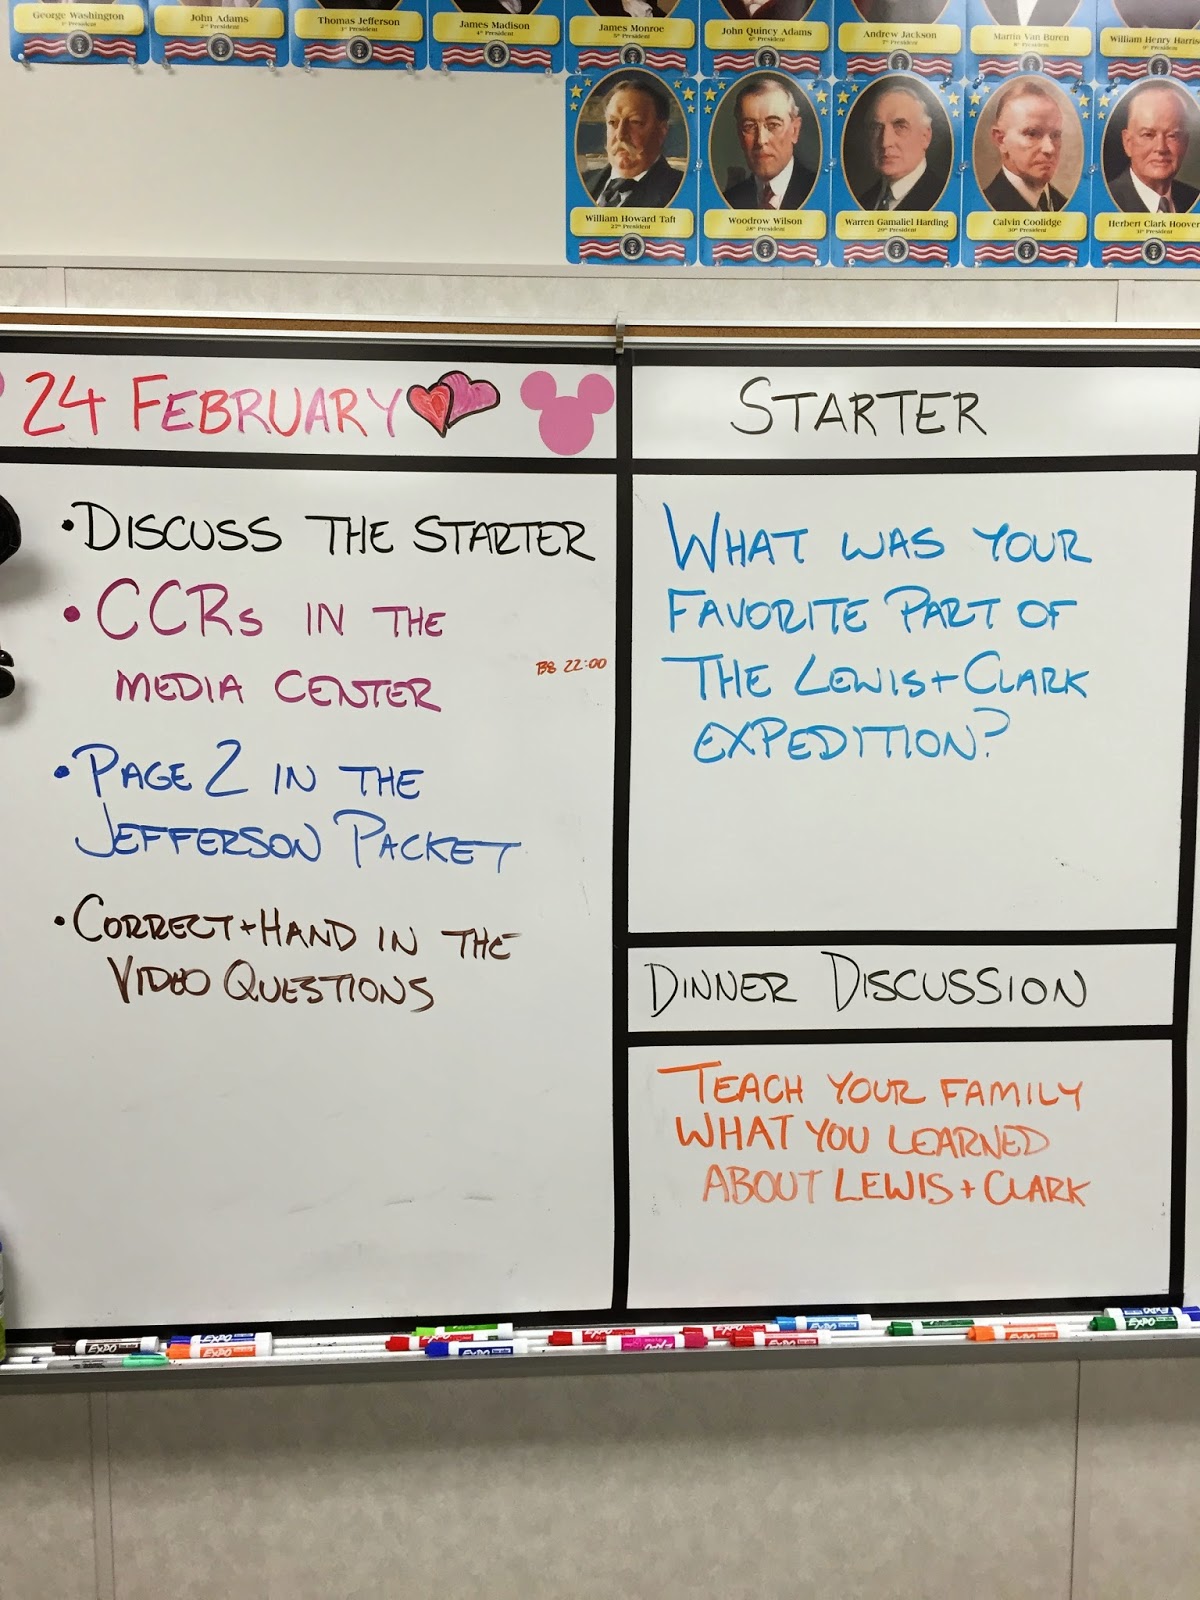 George Washington
1st President
John Adams
2nd President
Thomas Jefferson
James Madison
4th President
James Monroe
5th President
John Quincy Adams
6th President
Andrew Jackson
7th President
Martin Van Buren
8th President
William Henry Harris
9th President
William Howard Taft
27th President
Woodrow Wilson
28th President
Warren Gamaliel Harding
29th President
Calvin Coolidge
30th President
Herbert Clark Hoover
31st President
24 FEBRUARY
• DISCUSS THE STARTER
• CCRs IN THE
MEDIA CENTER
B8 22:00
• PAGE 2 IN THE
JEFFERSON PACKET
• CORRECT + HAND IN THE
VIDEO QUESTIONS
STARTER
WHAT WAS YOUR
FAVORITE PART OF
THE LEWIS + CLARK
EXPEDITION?
DINNER DISCUSSION
TEACH YOUR FAMILY
WHAT YOU LEARNED
ABOUT LEWIS + CLARK
EXPO
EXPO
EXPO
EXPO
EXPO
EXPO